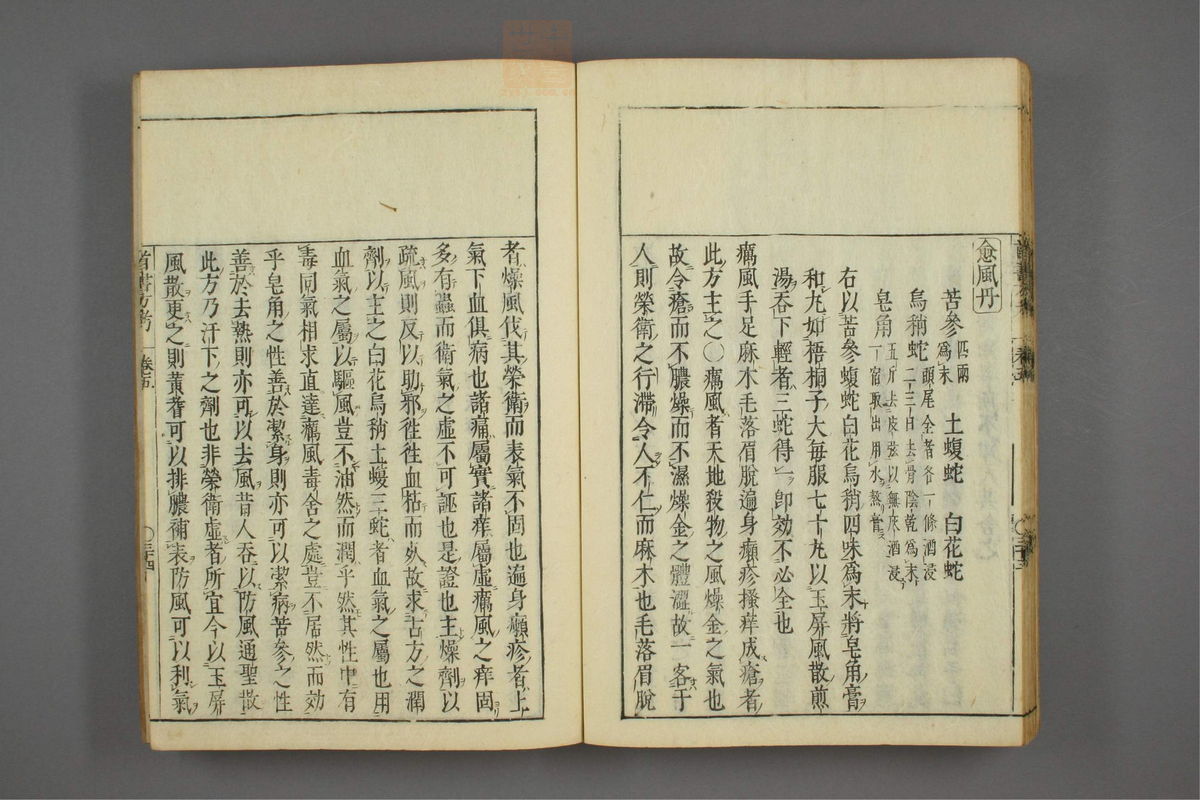 愈風丹
苦參四兩爲末 土蝮蛇 白花蛇
烏稍蛇頭尾全者各一條酒浸二三日去骨陰乾爲末
皂角五斤去皮弦以無灰酒浸一宿取出用水熬膏
右以苦參蝮蛇白花烏稍四味爲末將皂角膏
和丸如梧桐子大每服七十丸以玉屏風散煎
湯吞下輕者三蛇得一卽効不必全也
癘風手足麻木毛落眉脫遍身癩疹搔痒成瘡者
此方主之〇癘風者天地殺物之風燥金之氣也
故令瘡而不膿燥而不濕燥金之體澀故一客于
人則榮衛之行滯令人不仁而麻木也毛落眉脫
者燥風伐其榮衛而表氣不固也遍身癩疹者上
氣下血俱病也諸痛屬實諸痒屬虛癘風之痒固
多有蟲而衛氣之虛不可誣也是證也主燥劑以
疏風則反以助邪徃徃血枯而𣦸故求古方之潤
劑以主之白花烏稍土蝮三蛇者血氣之屬也用
血氣之屬以驅風豈不油然而潤乎然其性中有
毒同氣相求直達癘風毒舍之處豈不居然而効
乎皂角之性善於潔身則亦可以潔病苦參之性
善於去熱則亦可以去風昔人吞以防風通聖散
此方乃汗下之劑也非榮衛虛者所宜今以玉屏
風散更之則黃耆可以排膿補表防風可以利氣